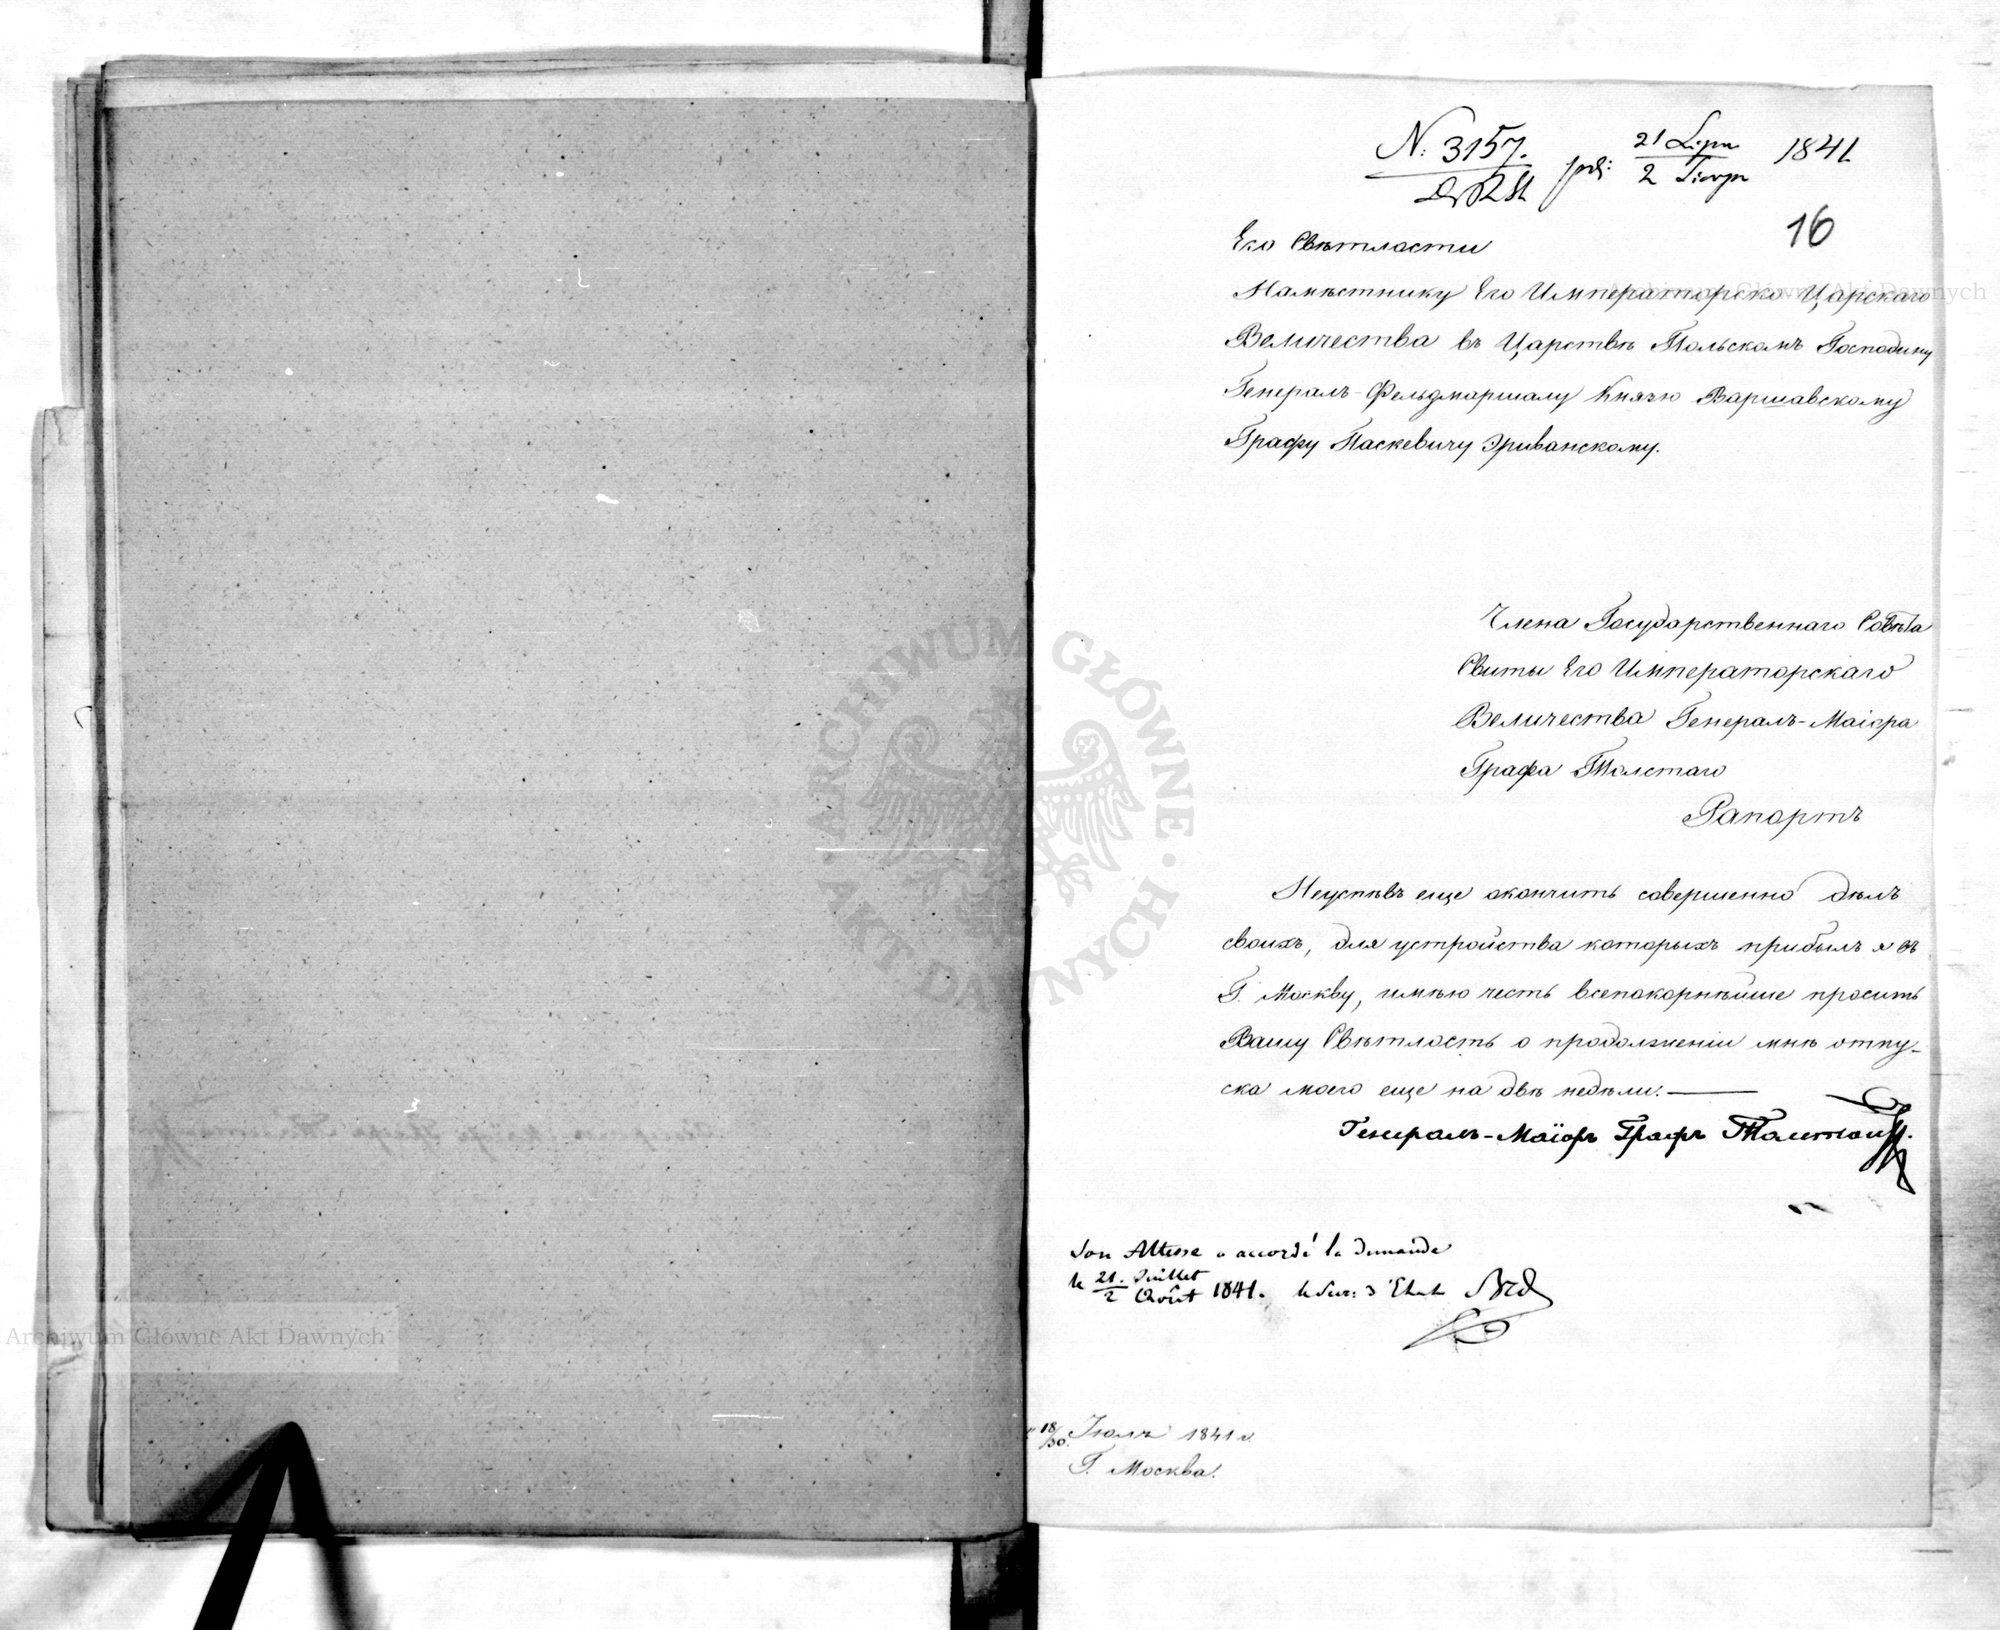 N: 3157.
21 Lipca
2 Sierpn
1841
16
Его Свѣтлости
Намѣстнику Его Императорско Царскаго
Величества въ Царствѣ Польскомъ Господину
Генералъ-Фельдмаршалу Князю Варшавскому
Графу Паскевичу Эриванскому.
Члена Государственнаго Совѣта
Свиты Его Императорскаго
Величества Генералъ-Маіора
Графа Толстаго
Рапортъ
Неуспѣвъ еще окончить совершенно дѣлъ
своихъ, для устройства которыхъ прибылъ я въ
Г. Москву, имѣю честь всепокорнѣйше просить
Вашу Свѣтлость о продолженіи мнѣ отпу-
ска моего еще на двѣ недѣли.
Генералъ-Маіоръ Графъ Толстой
Son Altesse a accordé la demande
le 21. Juillet
2 Août 1841. le Secr: d'Etat
18/30 Іюлъ 1841 г.
Г. Москва.
Archiwum Główne Akt Dawnych
Archiwum Główne Akt Dawnych
ARCHIWUM GŁÓWNE · AKT DAWNYCH ·